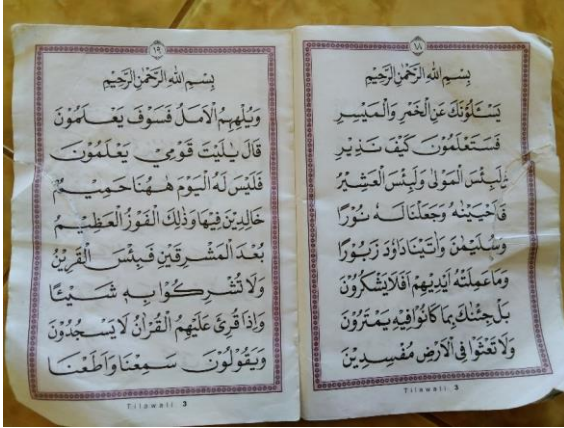 ١٨
بِسْمِ اللهِ الرَّحْمٰنِ الرَّحِيْمِ
يَسْئَلُوْنَكَ عَنِ الْخَمْرِ وَالْمَيْسِرِ
فَسَتَعْلَمُوْنَ كَيْفَ نَذِيْرِ
لَبِئْسَ الْمَوْلٰى وَلَبِئْسَ الْعَشِيْرُ
فَاَحْيَيْنٰهُ وَجَعَلْنَا لَهٗ نُوْرًا
وَسُلَيْمٰنَ وَاٰتَيْنَا دَاوٗدَ زَبُوْرًا
وَمَا عَمِلَتْهُ اَيْدِيْهِمْ اَفَلَا يَشْكُرُوْنَ
بَلْ جِئْنٰكَ بِمَا كَانُوْا فِيْهِ يَمْتَرُوْنَ
وَلَا تَعْثَوْا فِى الْاَرْضِ مُفْسِدِيْنَ
Tilawati 3
١٩
بِسْمِ اللهِ الرَّحْمٰنِ الرَّحِيْمِ
وَيُلْهِهِمُ الْاَمَلُ فَسَوْفَ يَعْلَمُوْنَ
قَالَ يٰلَيْتَ قَوْمِيْ يَعْلَمُوْنَ
فَلَيْسَ لَهُ الْيَوْمَ هٰهُنَا حَمِيْمٌ
خَالِدِيْنَ فِيْهَا وَذٰلِكَ الْفَوْزُ الْعَظِيْمُ
بُعْدَ الْمَشْرِقَيْنِ فَبِئْسَ الْقَرِيْنُ
وَلَا تُشْرِكُوْا بِهٖ شَيْئًا
وَاِذَا قُرِئَ عَلَيْهِمُ الْقُرْاٰنُ لَا يَسْجُدُوْنَ
وَيَقُوْلُوْنَ سَمِعْنَا وَاَطَعْنَا
Tilawati 3